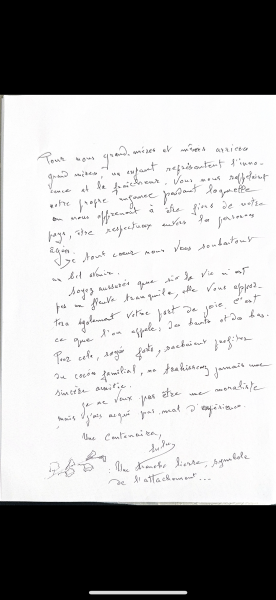 Pour nous grand-mères et mères arrière
grand mères, un enfant représentent l'inno-
cence et la fraîcheur. Vous nous rappelent
notre propre enfance pendant laquelle
on nous apprenait à être fiers de notre
pays, être respectueux envers les personnes
agées.
De tout coeur nous vous souhaitons
un bel avenir.
Soyez assurées que si la vie n'est
pas un fleuve tranquille, elle vous appor-
tera également votre part de joie. C'est
ce que l'on appele, des hauts et des bas.
Pour cela, soyez forts, sachant profiter
du cocon familial, ne trahissez jamais une
sincère amitié.
Ça ne veux pas être une moraliste
mais j'ai acquis pas mal d'expérience.
Une Centenaire,
: Une branche lierre, symbole
de l'attachement...